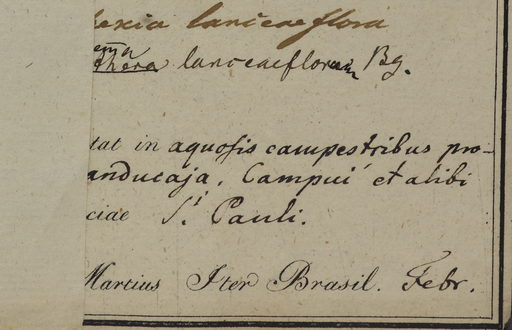 lexia lanceaeflora
ema
thera lanceaeflorum Bg.
tat in aquosis campestribus pro-
anducaja, Campui et alibi
ciae S. Pauli.
Martius Iter Brasil. Febr.